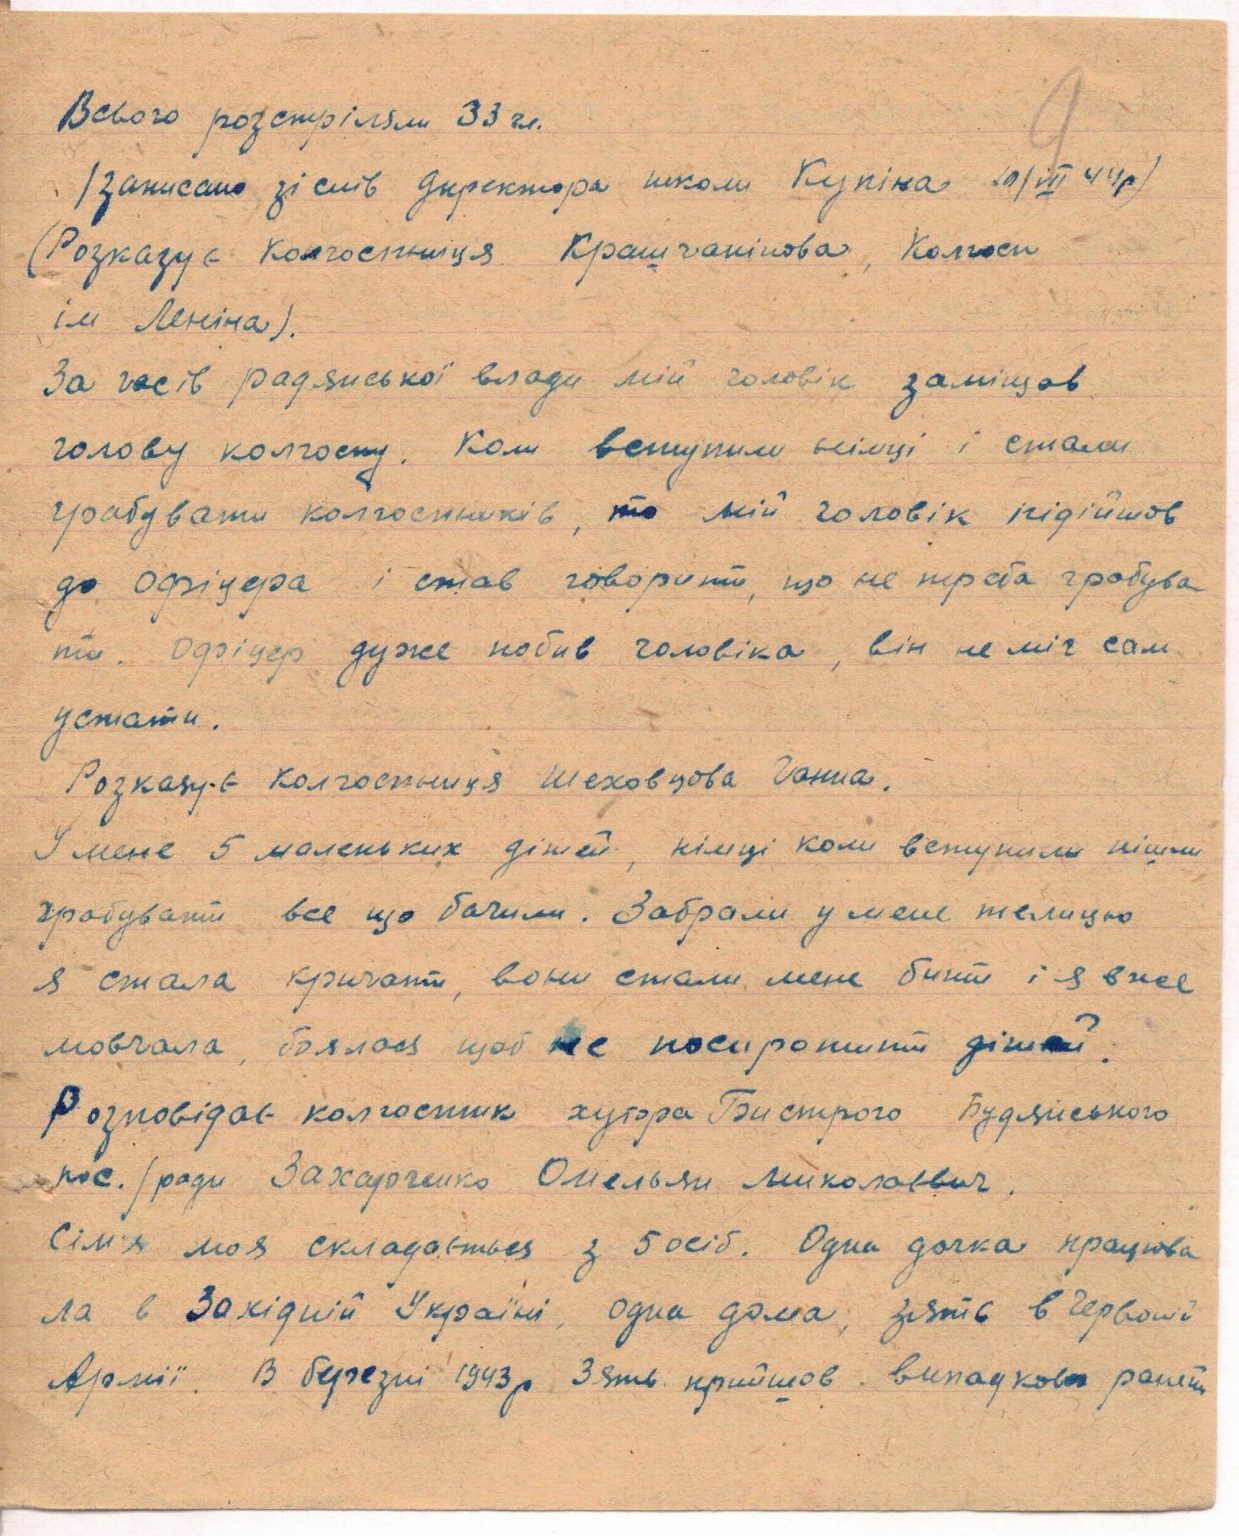 9
Всього розстріляли 33 чл.
/записано зі слів директора школи Купіна /VII 44р/
(Розказує колгоспниця Крашчанінова, Колгосп
ім Леніна).
За часів радянської влади мій чоловік заміщав
голову колгоспу. Коли вступили німці і стали
грабувати колгоспників, то мій чоловік підійшов
до офіцера і став говорить, що не треба грабува
ти. Офіцер дуже побив чоловіка, він не міг сам
устати.
Розказує колгоспниця Шеховцова Ганна.
У мене 5 маленьких дітей, німці коли вступили пішли
грабувати все що бачили. Забрали у мене телицю
я стала кричати, вони стали мене бити і я вже
мовчала, боялася щоб не посиротити дітей.
Розповідає колгоспник хутора Бистрого Будянського
пос./ради Захарченко Омельян Миколаєвич.
Сім'я моя складається з 5 осіб. Одна дочка працюва
ла в Західній Україні, одна дома, зять в Червоній
Армії. В березні 1943р Зять прийшов випадково